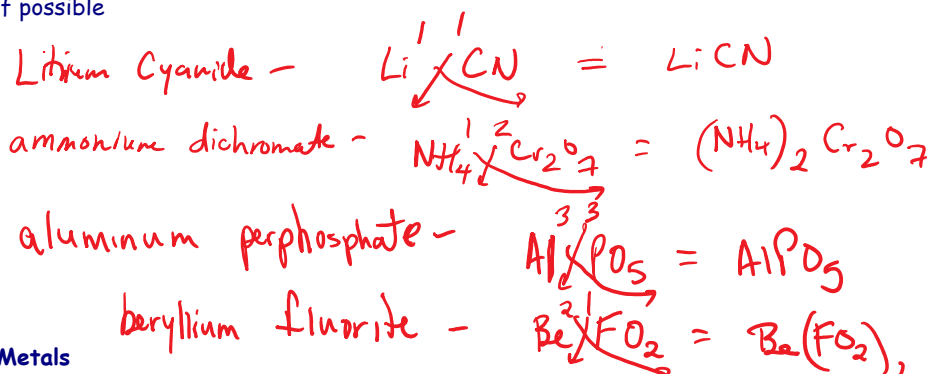 f possible
Litium Cyanide - Li¹ CN¹ = LiCN
ammonium dichromate - NH₄¹ Cr₂O₇² = (NH₄)₂ Cr₂O₇
aluminum perphosphate - Al³ PO₅³ = AlPO₅
beryllium fluorite - Be² FO₂¹ = Be(FO₂)₂
Metals